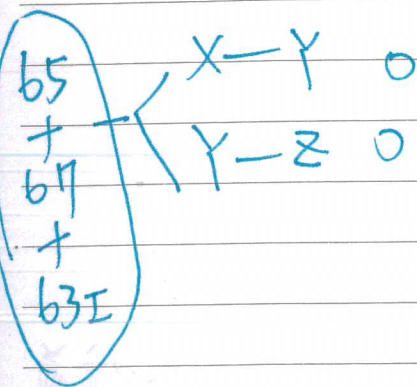 65
+
67
+
63I
X—Y O
Y—Z O